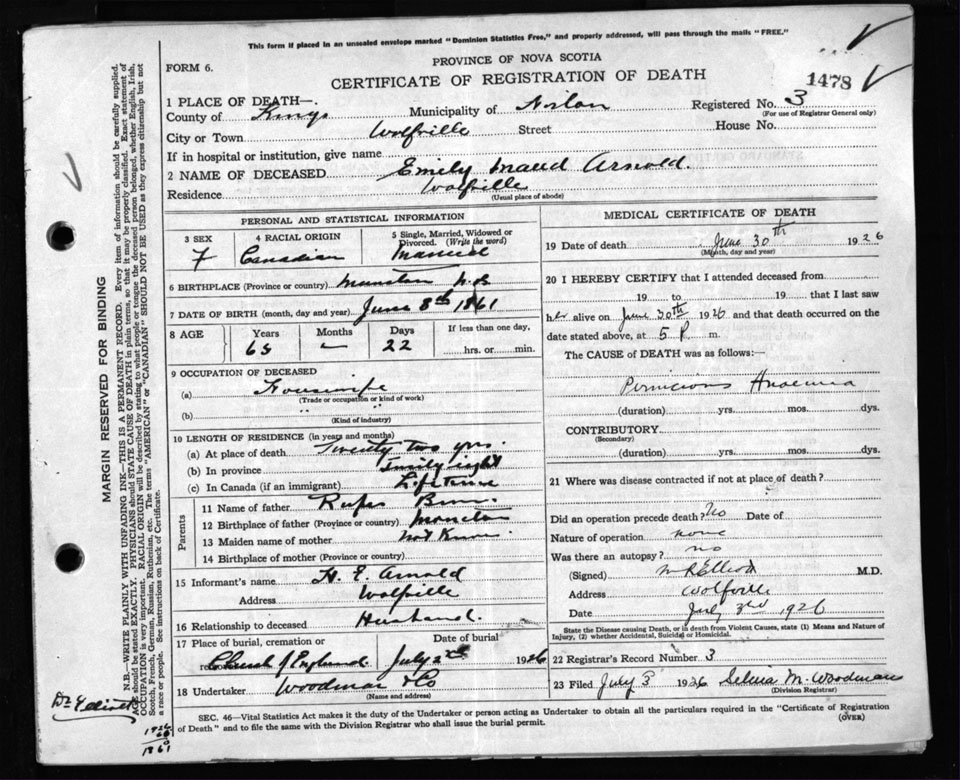 This form if placed in an unsealed envelope marked "Dominion Statistics Free," and properly addressed, will pass through the mails "FREE."
FORM 6.
PROVINCE OF NOVA SCOTIA
CERTIFICATE OF REGISTRATION OF DEATH
1478
1 PLACE OF DEATH—.
County of Kings Municipality of Registered No. 3
(For use of Registrar General only)
City or Town Wolfville Street House No.
If in hospital or institution, give name
2 NAME OF DECEASED Emily Maud Arnold.
Residence Wolfville
(Usual place of abode)
PERSONAL AND STATISTICAL INFORMATION
3 SEX 4 RACIAL ORIGIN 5 Single, Married, Widowed or Divorced. (Write the word)
F Canadian Married
6 BIRTHPLACE (Province or country) Moncton N.B.
7 DATE OF BIRTH (month, day and year) June 8th 1861
8 AGE Years Months Days If less than one day,
65 — 22 hrs. or min.
9 OCCUPATION OF DECEASED
(a) Housewife
(Trade or occupation or kind of work)
(b)
(Kind of industry)
10 LENGTH OF RESIDENCE (in years and months)
(a) At place of death Twenty two yrs.
(b) In province eight
(c) In Canada (if an immigrant) Lifetime
Parents
11 Name of father
12 Birthplace of father (Province or country) Moncton
13 Maiden name of mother Not Known
14 Birthplace of mother (Province or country)
15 Informant's name H. E. Arnold
Address Wolfville
16 Relationship to deceased Husband.
17 Place of burial, cremation or Date of burial
Church of England. July 2nd 1926
18 Undertaker Woodman & Co
(Name and address)
MEDICAL CERTIFICATE OF DEATH
19 Date of death June 30th 1926
(Month, day and year)
20 I HEREBY CERTIFY that I attended deceased from
19 to 19 that I last saw
her alive on June 30th 1926 and that death occurred on the
date stated above, at 5 P. m.
The CAUSE of DEATH was as follows:—
Pernicious Anaemia
(duration) yrs. mos. dys.
CONTRIBUTORY
(Secondary)
(duration) yrs. mos. dys.
21 Where was disease contracted if not at place of death?
Did an operation precede death? No Date of
Nature of operation none
Was there an autopsy? no
(Signed) M R Elliott M.D.
Address Wolfville
Date July 2nd 1926
State the Disease causing Death, or in death from Violent Causes, state (1) Means and Nature of Injury, (2) whether Accidental, Suicidal or Homicidal.
22 Registrar's Record Number 3
23 Filed July 3 1926 Selina M. Woodman
(Division Registrar)
SEC. 46—Vital Statistics Act makes it the duty of the Undertaker or person acting as Undertaker to obtain all the particulars required in the "Certificate of Registration
of Death" and to file the same with the Division Registrar who shall issue the burial permit.
(OVER)
MARGIN RESERVED FOR BINDING
N.B.—WRITE PLAINLY WITH UNFADING INK—THIS IS A PERMANENT RECORD. Every item of information should be carefully supplied.
AGE should be stated EXACTLY. PHYSICIANS should STATE CAUSE OF DEATH in plain terms, so that it may be properly classified. Exact statement of
OCCUPATION is very important. RACIAL ORIGIN will be described by stating to what people or tongue the deceased person belonged, whether English, Irish,
Scotch, French, German, Russian, Ruthenian, etc. The terms "AMERICAN" or "CANADIAN" SHOULD NOT BE USED as they express citizenship but not
a race or people. See instructions on back of Certificate.
Dr Elliott
1926
65
1861